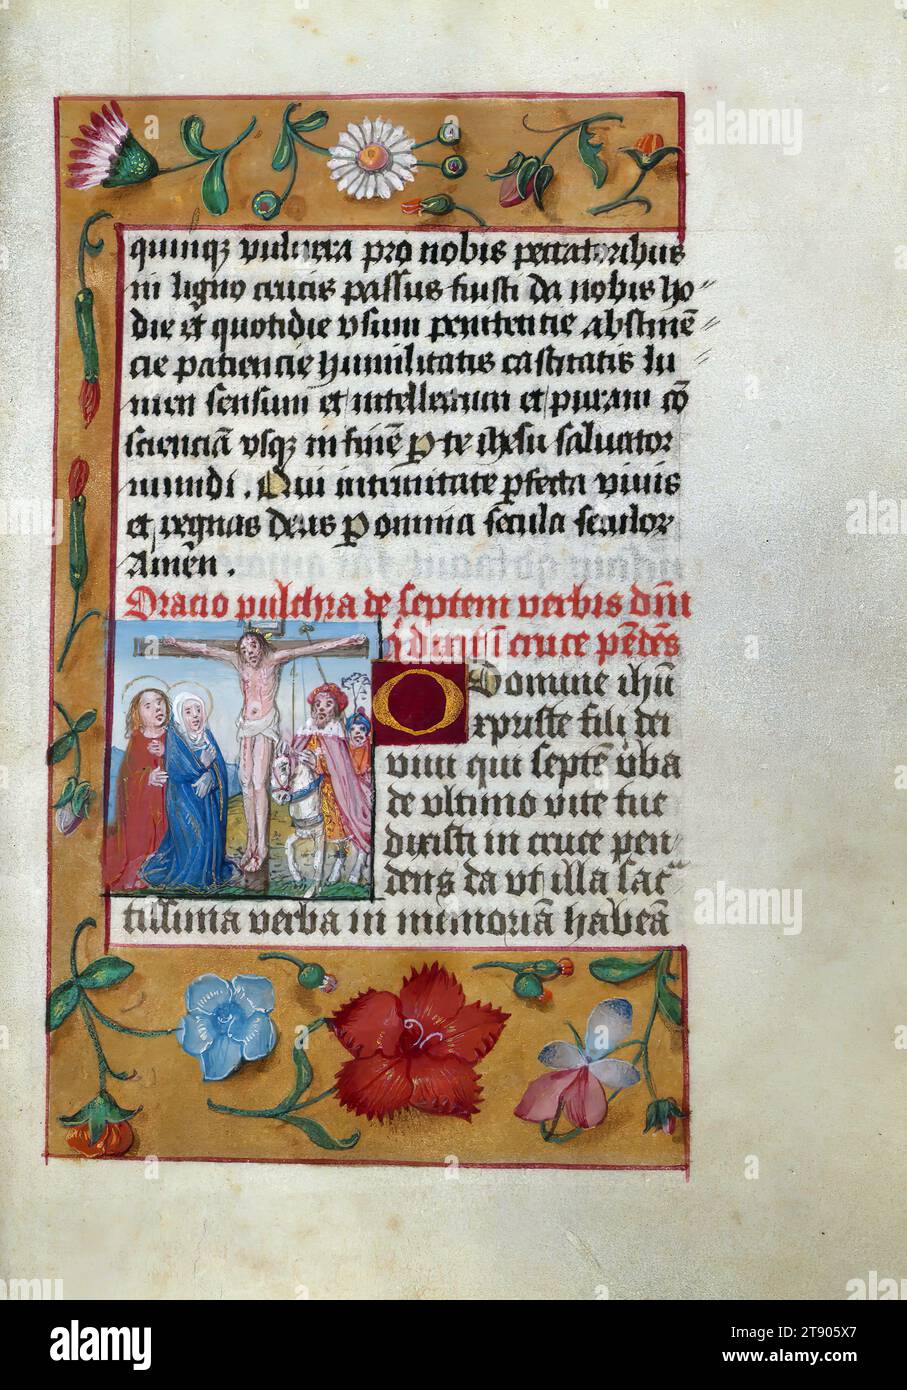 quinqz vulnera pro nobis peccatoribus
in ligno crucis passus fuisti da nobis ho-
die et quotidie usum penitencie abstinē
cie patiencie humilitatis castitatis lu
men sensum et intellectum et puram cō
scienciā usqz in finē p te ihesu saluator
mundi . Qui in trinitate pfecta viuis
et regnas deus P omnia secula seculor
Amēn .
Oratio pulchra de septem verbis dnī
in cruce pēdēs
O Domine ihū
xpriste fili dei
viui qui septē vba
de ultimo vite tue
dixisti in cruce pen
dens da ut illa sac
tissima verba in memoriā habeā
alamy
Image ID: 2T905X7
www.alamy.com